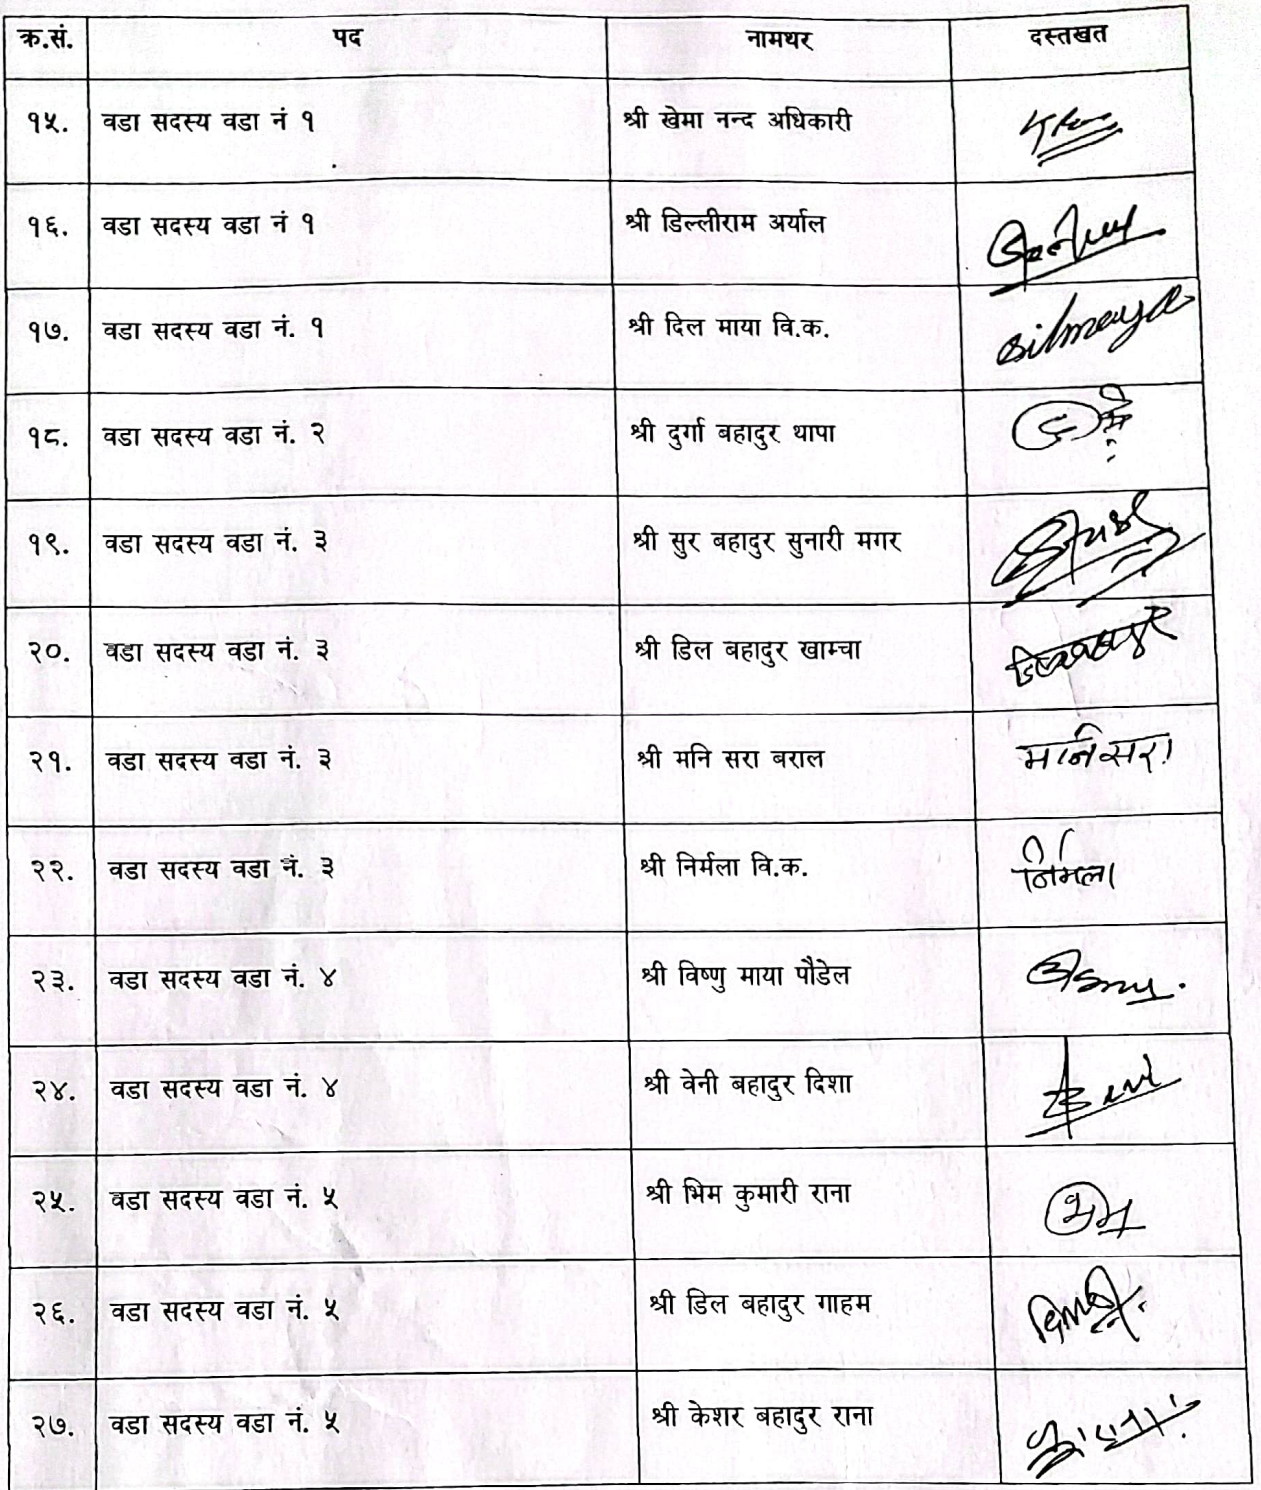 क्र.सं. पद नामथर दस्तखत
१५. वडा सदस्य वडा नं १ श्री खेमा नन्द अधिकारी
१६. वडा सदस्य वडा नं १ श्री डिल्लीराम अर्याल
१७. वडा सदस्य वडा नं. १ श्री दिल माया वि.क. dilmaya
१८. वडा सदस्य वडा नं. २ श्री दुर्गा बहादुर थापा
१९. वडा सदस्य वडा नं. ३ श्री सुर बहादुर सुनारी मगर
२०. वडा सदस्य वडा नं. ३ श्री डिल बहादुर खाम्चा
२१. वडा सदस्य वडा नं. ३ श्री मनि सरा बराल मनिसरा
२२. वडा सदस्य वडा नं. ३ श्री निर्मला वि.क. निर्मला
२३. वडा सदस्य वडा नं. ४ श्री विष्णु माया पौडेल
२४. वडा सदस्य वडा नं. ४ श्री वेनी बहादुर दिशा
२५. वडा सदस्य वडा नं. ५ श्री भिम कुमारी राना
२६. वडा सदस्य वडा नं. ५ श्री डिल बहादुर गाहम
२७. वडा सदस्य वडा नं. ५ श्री केशर बहादुर राना